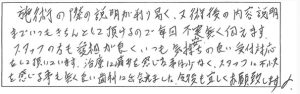 施術の際の説明が判り易く、又術後の内容説明
までいつもきちんとして頂けるので毎回不安無く伺えます。
スタッフの方も愛想が良く、いつも気持ちの良い受付対応
をして頂いています。治療に痛みを感じる事は少なく、スタッフにストレス
を感じる事も無く良い歯科に出会えました。今後も宜しくお願い致します。